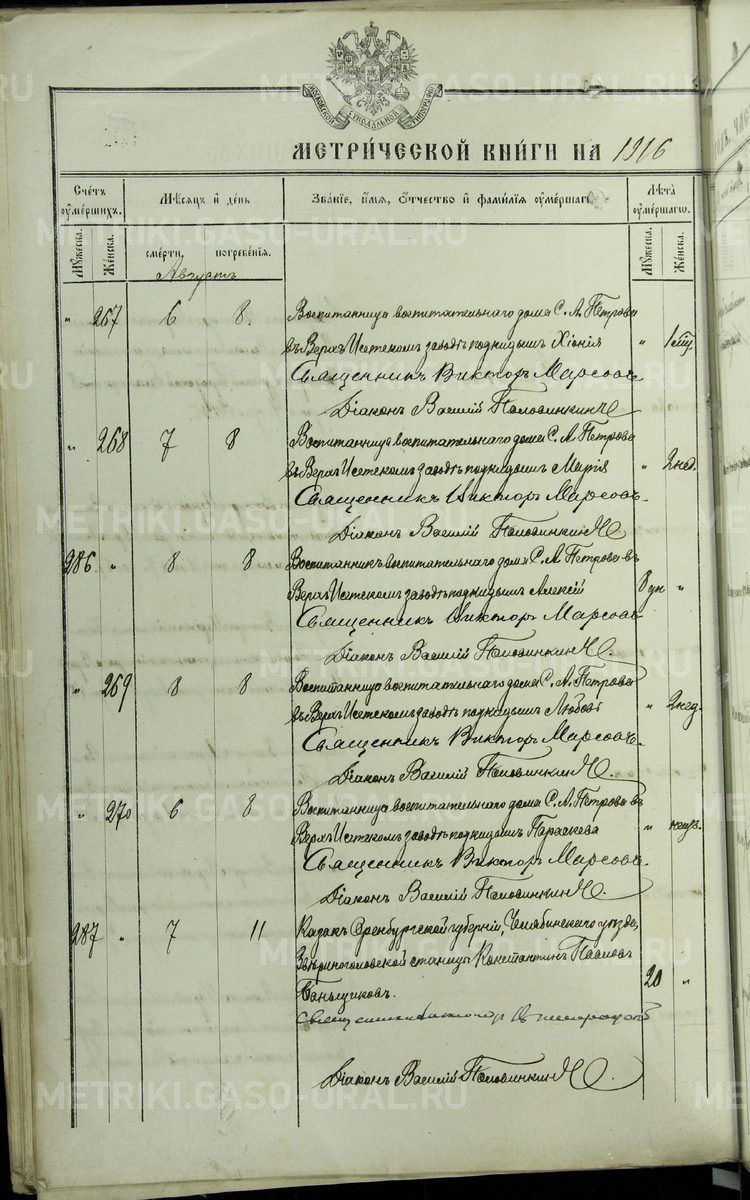 МОСКОВСКОЙ СѴНОДАЛЬНОЙ ТИПОГРАФІИ
МЕТРИ́ЧЕСКОЙ КНИ́ГИ НА 1916
Сче́тъ ᲂу҆ме́ршихъ. Мѣ́сяцъ и҆ де́нь Зва́нїе, и҆́мя, ѻ҆́тчество и҆ фами́лїя ᲂу҆ме́ршагѡ. Лѣ́та ᲂу҆ме́ршагѡ.
Му́жеска. Же́нска. сме́рти. погребе́нїѧ. Му́жеска. Же́нска.
Августъ
" 267 6 8. Воспитанница воспитательнаго дома С. А. Петрова
въ Верхъ Исетскомъ заводѣ подкидышъ Хіонія " 1 мѣс.
Священникъ Викторъ Марсовъ
Діаконъ Василій Половинкинъ
" 268 7 8 Воспитанница воспитательнаго дома С. А. Петрова
въ Верхъ Исетскомъ заводѣ подкидышъ Марія " 2 нед.
Священникъ Викторъ Марсовъ.
Діаконъ Василій Половинкинъ
286 " 8 8 Воспитанникъ воспитательнаго дома С. А. Петрова въ
Верхъ Исетскомъ заводѣ подкидышъ Алексій 8 дн "
Священникъ Викторъ Марсовъ
Діаконъ Василій Половинкинъ
" 269 8 8 Воспитанница воспитательнаго дома С. А. Петрова
въ Верхъ Исетскомъ заводѣ подкидышъ Любовь " 2 нед.
Священникъ Викторъ Марсовъ.
Діаконъ Василій Половинкинъ.
" 270 6 8 Воспитанница воспитательнаго дома С. А. Петрова въ
Верхъ Исетскомъ заводѣ подкидышъ Параскева "
Священникъ Викторъ Марсовъ.
Діаконъ Василій Половинкинъ.
287 " 7 11 Казакъ Оренбургской губерніи, Челябинскаго уѣзда,
Звѣриноголовской станицы Константинъ Павловъ
Банщиковъ. 20 "
Священникъ
Діаконъ Василій Половинкинъ.
METRIKI.GASO-URAL.RU